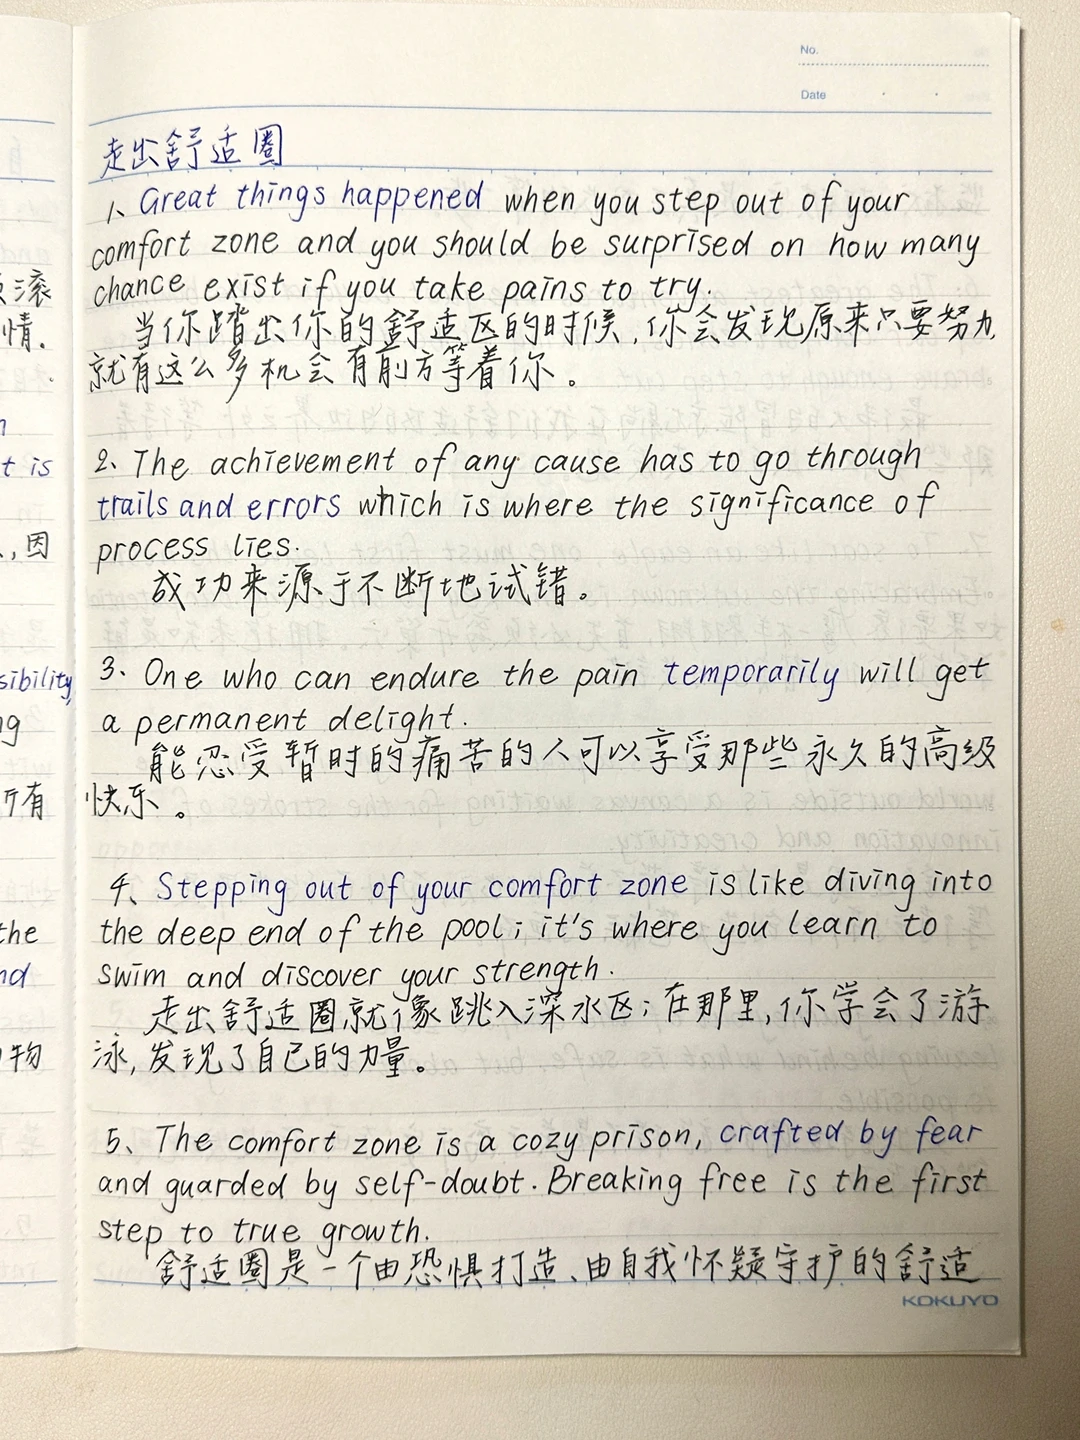 No.
Date
走出舒适圈
1、Great things happened when you step out of your
comfort zone and you should be surprised on how many
chance exist if you take pains to try.
当你踏出你的舒适区的时候,你会发现原来只要努力,
就有这么多机会有前方等着你。
2、The achievement of any cause has to go through
trails and errors which is where the significance of
process lies.
成功来源于不断地试错。
3、One who can endure the pain temporarily will get
a permanent delight.
能忍受暂时的痛苦的人可以享受那些永久的高级
快乐。
4、Stepping out of your comfort zone is like diving into
the deep end of the pool; it's where you learn to
swim and discover your strength.
走出舒适圈就像跳入深水区;在那里,你学会了游
泳,发现了自己的力量。
5、The comfort zone is a cozy prison, crafted by fear
and guarded by self-doubt. Breaking free is the first
step to true growth.
舒适圈是一个由恐惧打造、由自我怀疑守护的舒适
KOKUYO
滚
情.
t is
,因
sibility,
ng
所有
the
nd
物